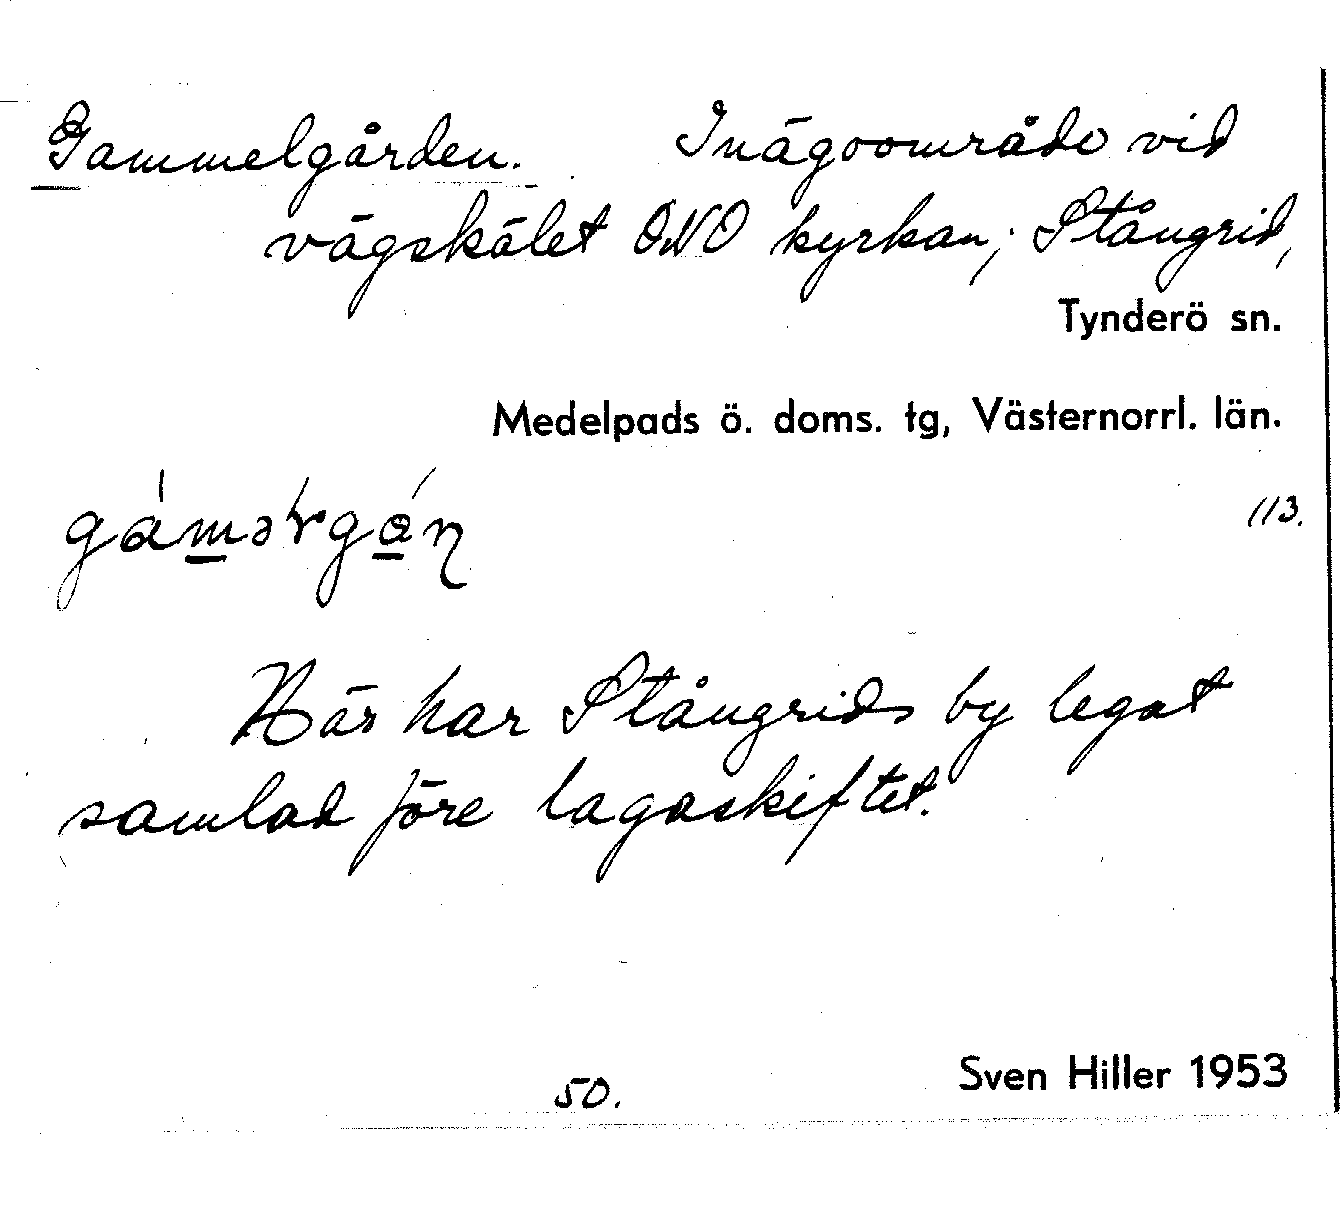 Gammelgården. Inägoområde vid
vägskälet ONO kyrkan; Stångrid,
Tynderö sn.
Medelpads ö. doms. tg, Västernorrl. län.
113.
Här har Stångrids by legat
samlad före lagaskiftet.
Sven Hiller 1953
50.